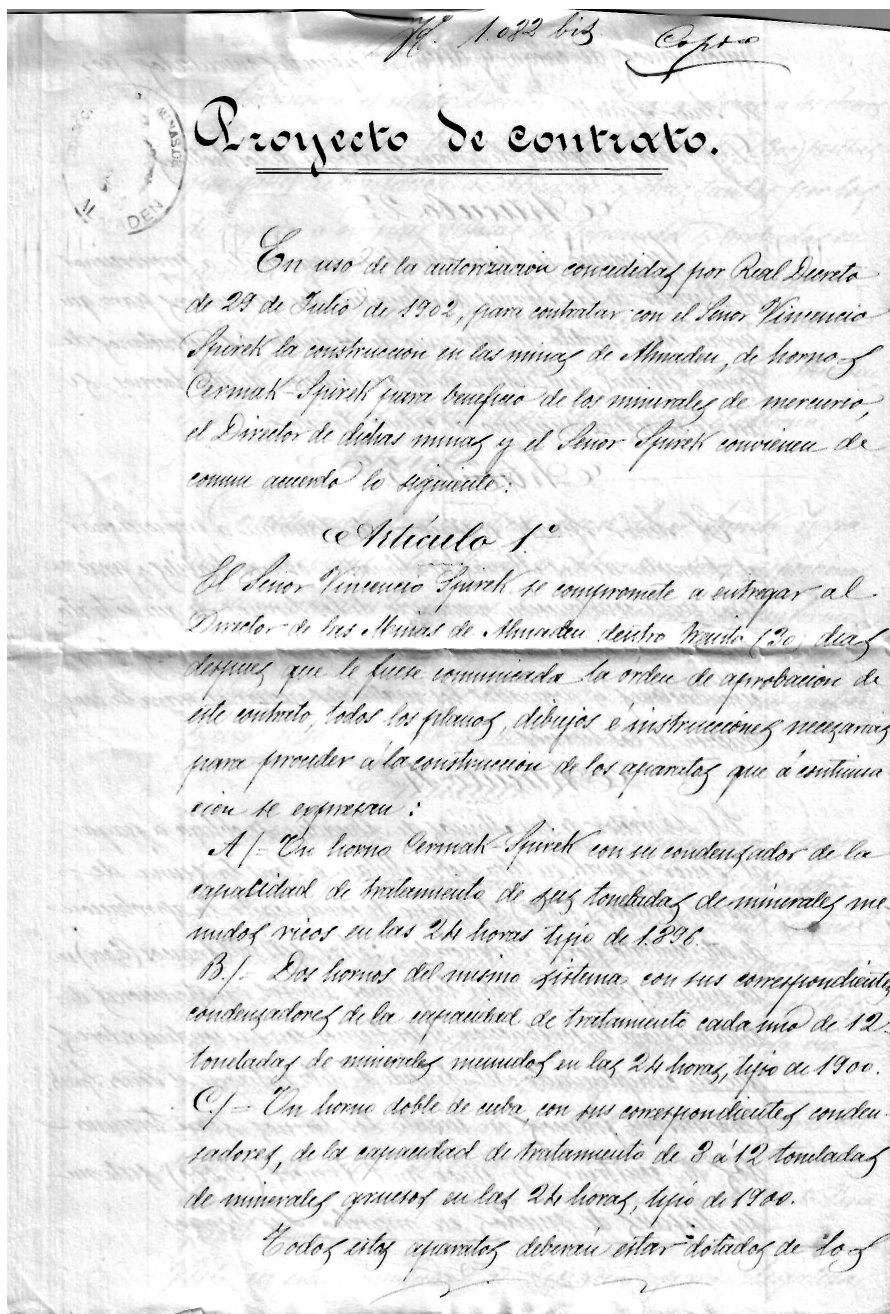 Nº. 1.082 bis Copia
MINAS DE
ADEN
Proyecto de contrato.
En uso de la autorización concedidas por Real Decreto
de 29 de Julio de 1902, para contratar con el Señor Vincencio
Spirek la construccion en las minas de Almaden, de hornos
Cermak-Spirek para beneficio de los minerales de mercurio,
el Director de dichas minas y el Señor Spirek convienen de
comun acuerdo lo siguiente:
Artículo 1.º
El Señor Vincencio Spirek se compromete a entregar al
Director de las Minas de Almaden dentro treinta (30) dias
despues que le fuese comunicada la orden de aprobacion de
este contrato, todos los planos, dibujos é instrucciones necesarias
para proceder á la construccion de los aparatos que á continua
cion se expresan:
A/= Un horno Cermak-Spirek con su condensador de la
capacidad de tratamiento de seis toneladas de minerales me-
nudos ricos en las 24 horas tipo de 1.896.-
B./- Dos hornos del mismo sistema con sus correspondientes
condensadores de la capacidad de tratamiento cada uno de 12-
toneladas de minerales menudos en las 24 horas, tipo de 1900.
C/= Un horno doble de cuba, con sus correspondientes conden-
sadores, de la capacidad de tratamiento de 8 á 12 toneladas
de minerales gruesos en las 24 horas, tipo de 1900.
Todos estos aparatos deberán estar dotados de los